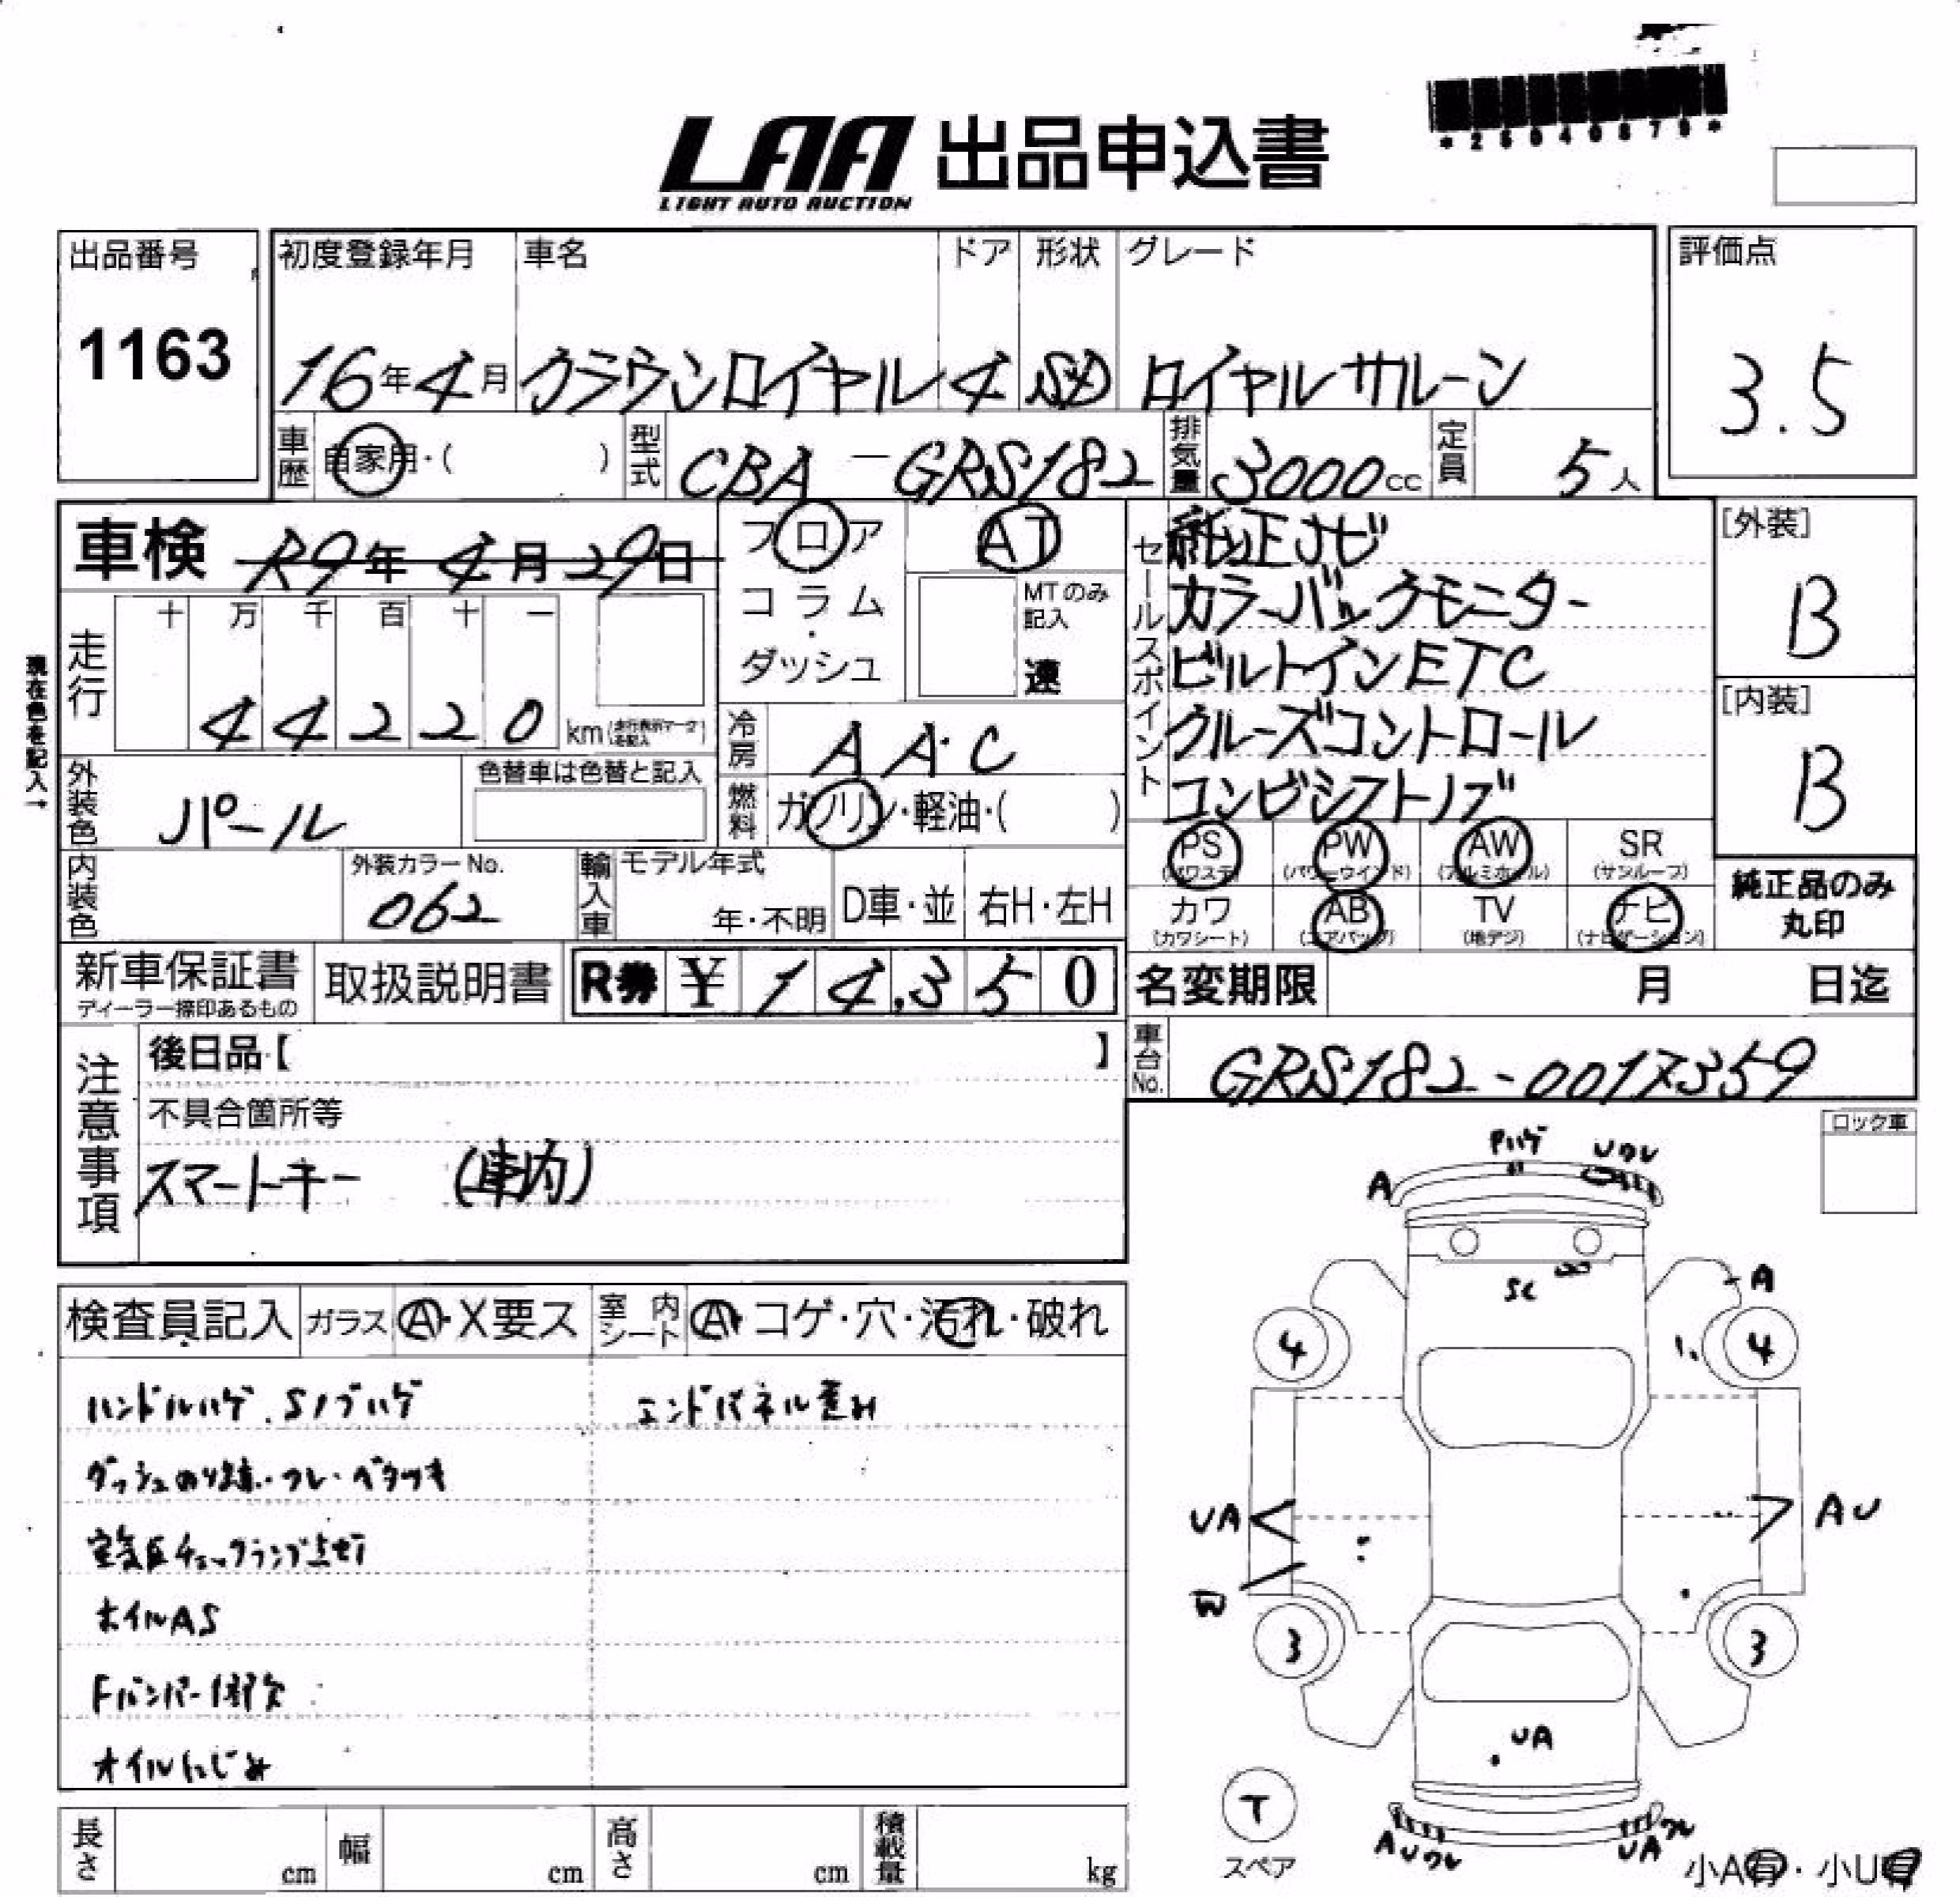 LAA 出品申込書
LIGHT AUTO AUCTION
出品番号
1163
初度登録年月 車名 ドア 形状 グレード
16年4月 クラウンロイヤル 4 SD ロイヤルサルーン
評価点
3.5
車歴 自家用・( ) 型式 CBA-GRS182 排気量 3000cc 定員 5人
車検 R9年4月29日
フロア AT
コラム・ダッシュ
MTのみ記入
速
セールスポイント
純正ナビ
カラーバックモニター
ビルトインETC
クルーズコントロール
コンビシストノブ
[外装]
B
[内装]
B
現在色を記入→
走行 十 万 千 百 十 一
44220 km(走行表示マークを記入)
冷房 AAC
外装色 パール 色替車は色替と記入
燃料 ガソリン・軽油・( )
PS (パワステ) PW (パワーウインド) AW (アルミホイル) SR (サンルーフ)
カワ (カワシート) AB (エアバック) TV (地デジ) ナビ (ナビゲーション)
純正品のみ
丸印
内装色 外装カラーNo. 062
輸入車 モデル年式 年・不明 D車・並 右H・左H
新車保証書 ディーラー捺印あるもの 取扱説明書 R券 ¥ 14,350
名変期限 月 日迄
車台No. GRS182-0017359
注意事項
後日品【 】
不具合箇所等
スマートキー (車内)
ロック車
検査員記入 ガラス A・X要ス 室内シート A・コゲ・穴・汚れ・破れ
ハンドルハゲ.Sノブハゲ エンドパネル歪み
ダッシュのり跡・ワレ・ベタツキ
空気圧チェックランプ点灯
ホイルAS
Fバンパー下部欠
オイルにじみ
Pハゲ
Uワレ
A
SC
A
4
4
UA
AU
W
3
3
UA
T
スペア
AUワレ
UAワレ
小A有・小U有
長さ cm 幅 cm 高さ cm 積載量 kg